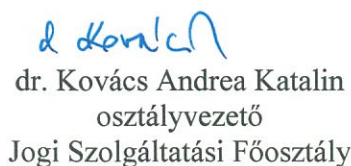 dr. Kovács Andrea Katalin
osztályvezető
Jogi Szolgáltatási Főosztály